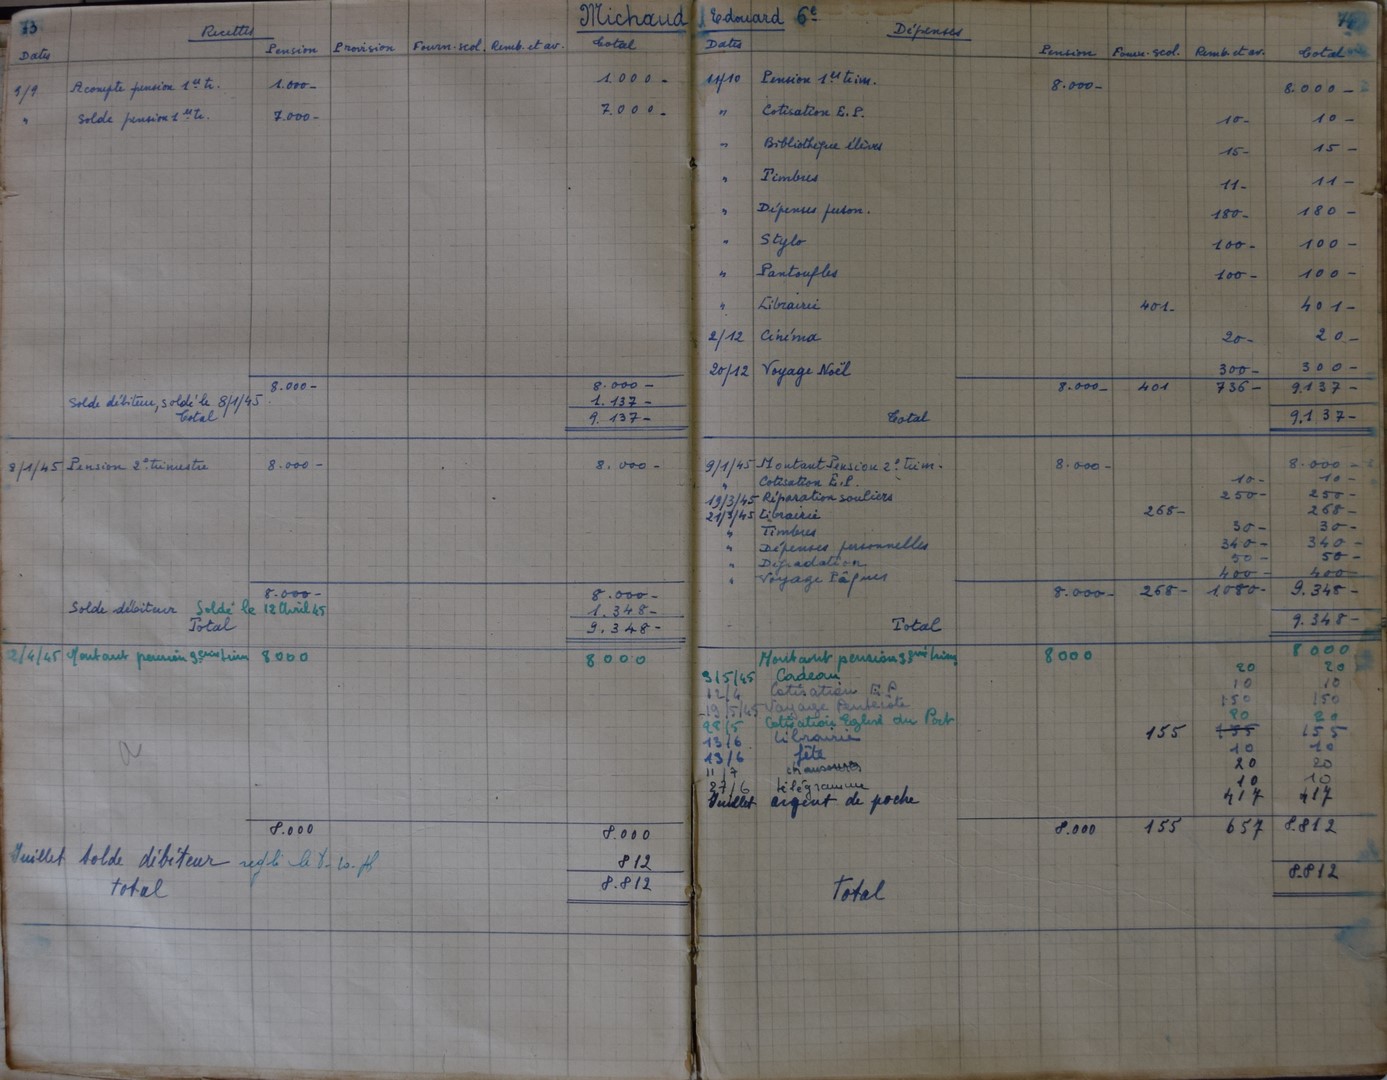 73
Michaud Edouard 6e
Recettes
Dates Pension Provision Fourn-scol. Remb. et av. Total
9/9 Acompte pension 1er tr. 1.000- 1.000-
" Solde pension 1er tr. 7.000- 7.000-
8.000- 8.000-
Solde débiteur, soldé le 8/1/45 1.137-
Total 9.137-
9/1/45 Pension 2e trimestre 8.000- 8.000-
8.000- 8.000-
Solde débiteur Soldé le 12 Avril 45 1.348-
Total 9.348-
2/4/45 Montant pension 3eme trim 8000 8000
8.000 8.000
Juillet Solde débiteur 812
Total 8.812
Dépenses
Dates Pension Fourn-scol. Remb. et av. Total
Pension 1er trim. 8.000- 8.000-
" Cotisation E.P. 10- 10-
" Bibliothèque élèves 15- 15-
" Timbres 11- 11-
" Dépenses person. 180- 180-
" Stylo 100- 100-
" Pantoufles 100- 100-
" Librairie 401- 401-
2/12 Cinéma 20- 20-
20/12 Voyage Noël 300- 300-
8.000- 401 736- 9137-
Total 9.137-
9/1/45 Montant Pension 2e Trim. 8.000- 8.000-
" Cotisation E.P. 10- 10-
19/3/45 Réparation souliers 250- 250-
21/3/45 Librairie 268- 268-
" Timbres 30- 30-
" Dépenses personnelles 340- 340-
" Dégradation 50- 50-
" Voyage Pâques 400- 400-
8.000- 268- 1080- 9.348-
Total 9.348-
Montant pension 3eme trim 8000 8000
3/5/45 Cadeau 20 20
12/4 Cotisation E.P 10 10
19/5/45 Voyage Pentecôte 150 150
28/5 Cotisation du Port 20 20
13/6 Librairie 155 155 155
13/6 fête 10 10
11/7 20 20
27/6 télégramme 10 10
Juillet argent de poche 417 417
8.000 155 657 8.812
Total 8.812